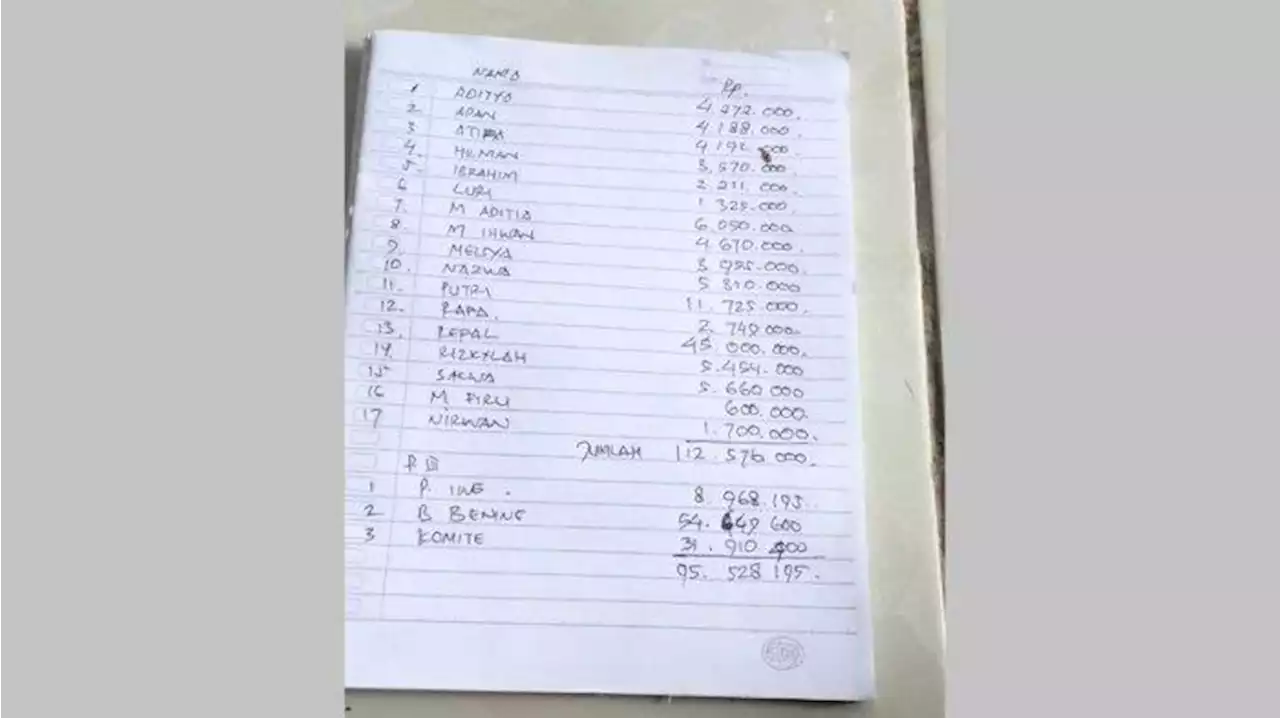 NAMA Rp.
1 ADITYA 4 272.000.
2 APAN 4 188.000.
3 ATIPA 4 192.000.
4. HILMAN 3.570.000.
5. IBRAHIM 2 211.000.
6 LURI 1 325.000.
7. M ADITIA 6.050.000
8. M IHWAN 4 670.000.
9. MELSYA 3 995.000.
10. NAZWA 5 310.000
11. PUTRI 11. 725.000.
12. RAPA. 2. 749.000.
13. REPAL 45.000.000.
14. RIZKYLAH 5.454.000
15 SALWA 5.660 000
16 M FIRLI 600.000.
17 NIRWAN 1.700.000.
JUMLAH 112.576 000.
1 P. 8.968.195.
2 B BENING 54.649 600
3 KOMITE 31.910 400
95. 528 195.